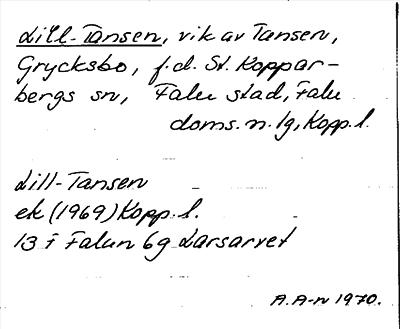 Lill-Tansen, vik av Tansen,
Grycksbo, f.d. St. Koppar-
bergs sn, Falu stad, Falu
doms. n. lg, Kopp. l.
Lill-Tansen
ek (1969) Kopp. l.
13 f Falun 6g Larsarvet
A.A-n 1970.